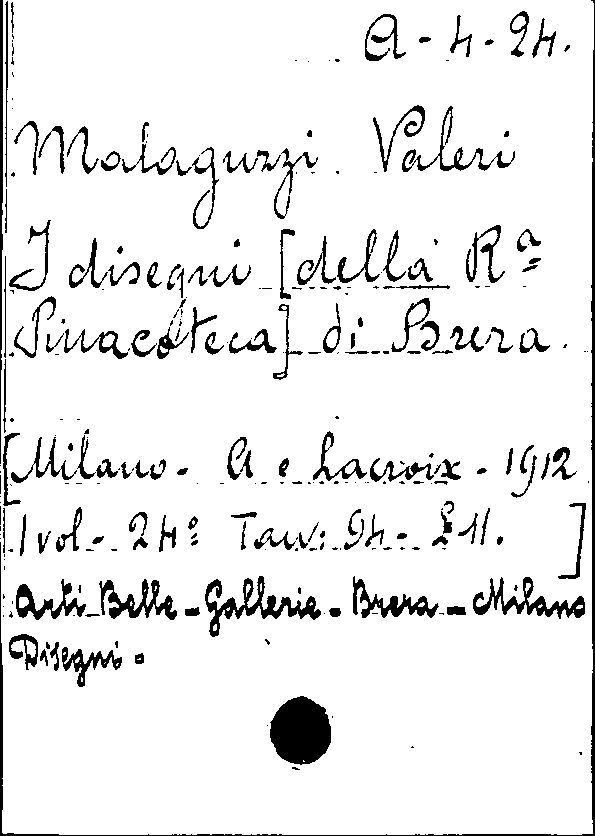 A-4-24.
Malaguzzi Valeri
I disegni [della Rª
Pinacoteca] di Brera.
[Milano - A e Lacroix - 1912
1 vol - 24º Tav: 94 - £ 11. ]
Arti Belle - Gallerie - Brera - Milano
Disegni -